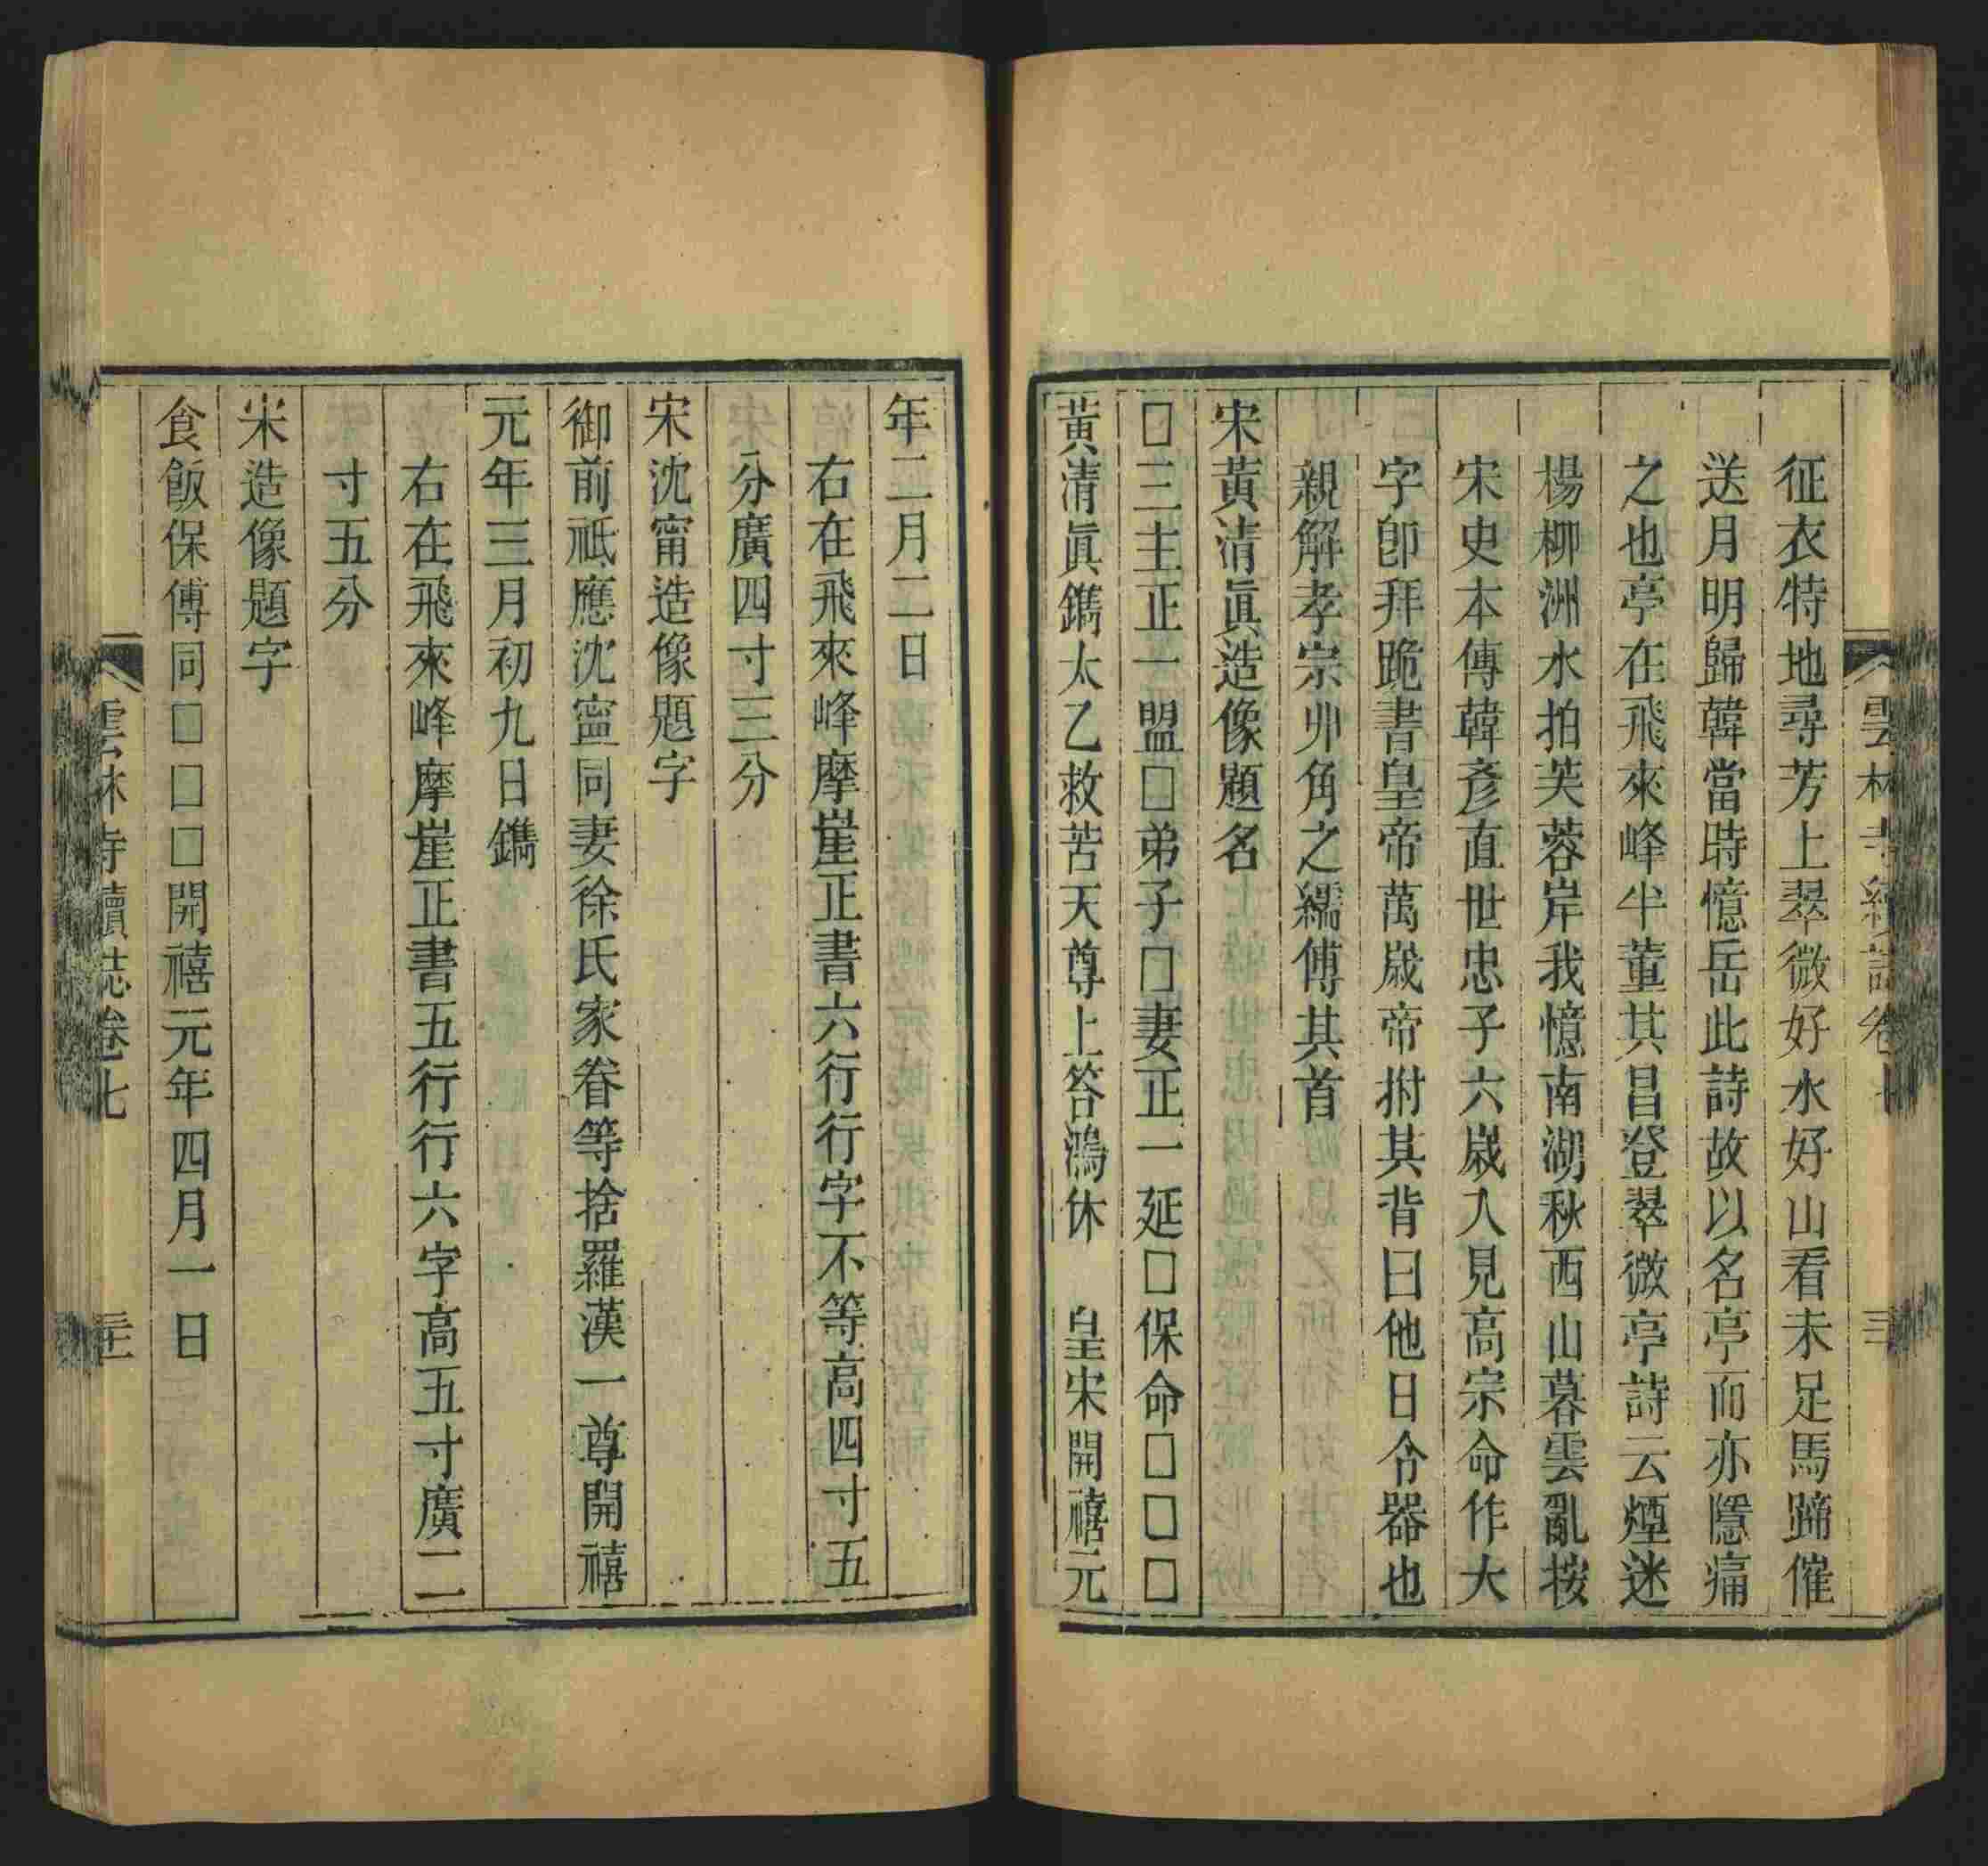 雲林寺續誌卷七
征衣特地尋芳上翠微好水好山看未足馬蹄催
送月明歸韓當時憶岳此詩故以名亭而亦隱痛
之也亭在飛來峰半董其昌登翠微亭詩云煙迷
楊柳洲水拍芙蓉岸我憶南湖秋西山暮雲亂按
宋史本傳韓彥直世忠子六歲入見高宗命作大
字卽拜跪書皇帝萬歲帝拊其背曰他日令器也
親解孝宗丱角之繻傅其首
宋黃清眞造像題名
□三主正一盟□弟子□妻正一延□保命□□□
黃清眞鐫太乙救苦天尊上答鴻休　皇宋開禧元
年二月二日
右在飛來峰摩崖正書六行行字不等高四寸五
分廣四寸三分
宋沈甯造像題字
御前祗應沈寧同妻徐氏家眷等捨羅漢一尊開禧
元年三月初九日鐫
右在飛來峰摩崖正書五行行六字高五寸廣二
寸五分
宋造像題字
食飯保傅同□□□開禧元年四月一日
雲林寺續誌卷七